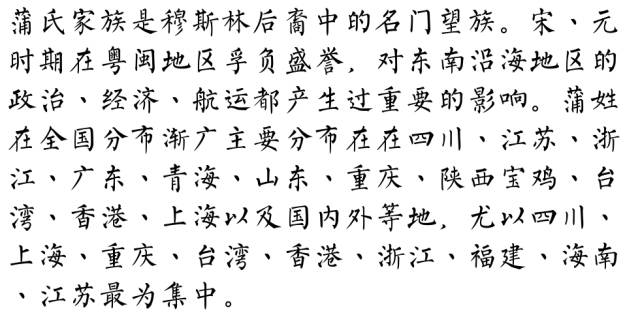 蒲氏家族是穆斯林后裔中的名门望族。宋、元
时期在粤闽地区孚负盛誉，对东南沿海地区的
政治、经济、航运都产生过重要的影响。蒲姓
在全国分布渐广主要分布在在四川、江苏、浙
江、广东、青海、山东、重庆、陕西宝鸡、台
湾、香港、上海以及国内外等地，尤以四川、
上海、重庆、台湾、香港、浙江、福建、海南
、江苏最为集中。